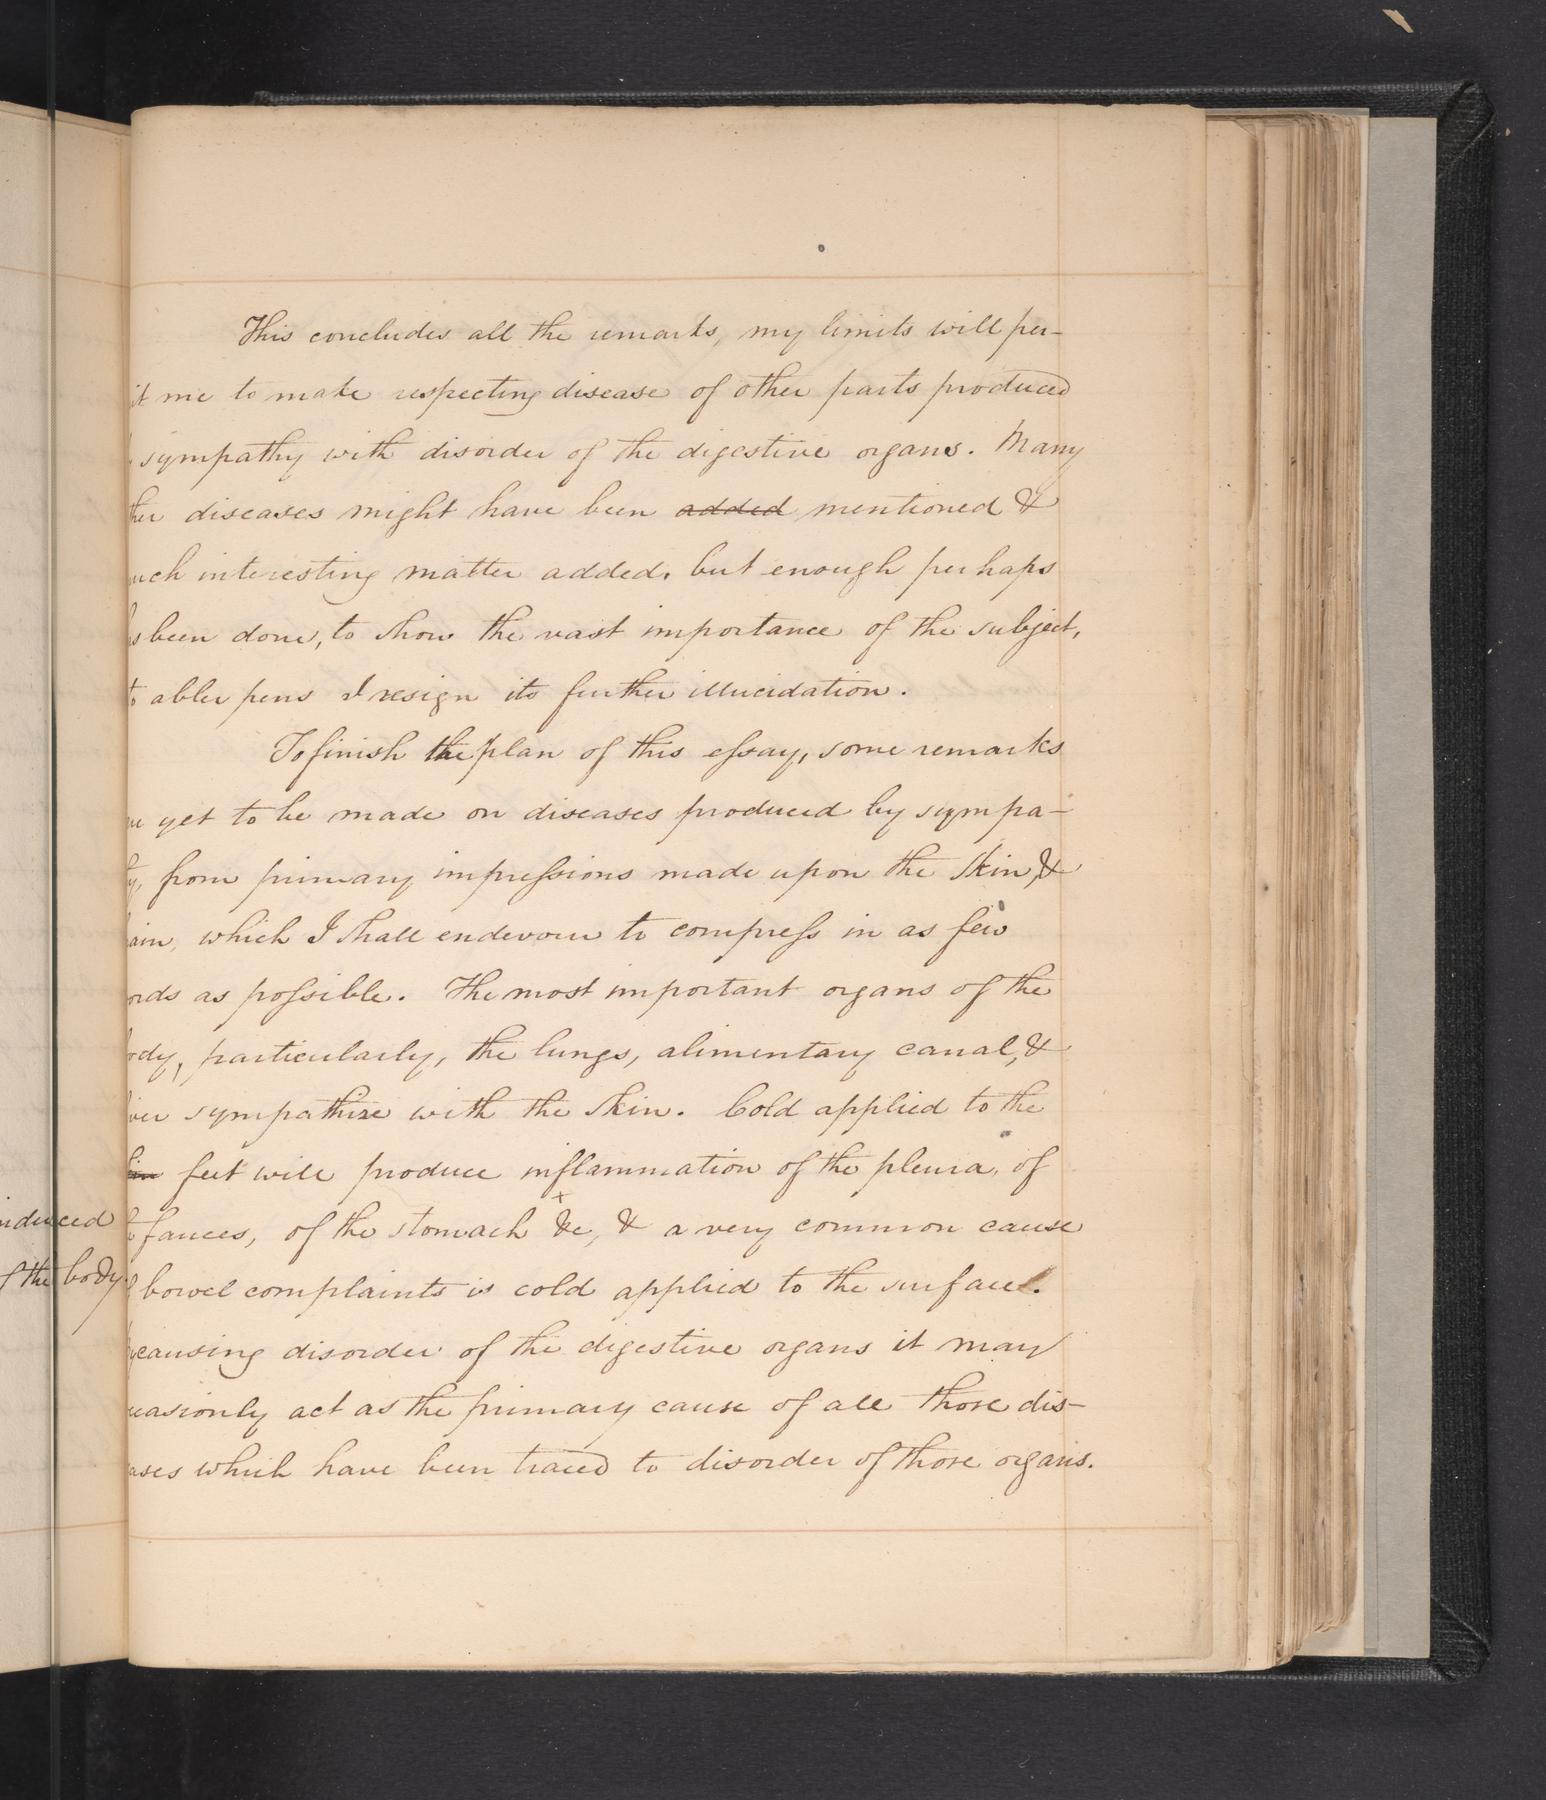 This concludes all the remarks, my limits will per-
it me to make respecting disease of other parts produced
sympathy with disorder of the digestive organs. Many
ther diseases might have been added mentioned &
uch interesting matter added. but enough perhaps
s been done, to show the vast importance of the subject,
to abler pens I resign its further illucidation.
To finish the plan of this essay, some remarks
yet to be made on diseases produced by sympa-
from primary impressions made upon the Skin, &
ain, which I shall endevour to compress in as few
ords as possible. The most important organs of the
ody, particularly, the lungs, alimentary canal, &
ver sympathize with the Skin. Cold applied to the
feet will produce inflammation of the pleura, of
fauces, of the stomach &c, & a very common cause
bowel complaints is cold applied to the surface.
causing disorder of the digestive organs it may
casionly act as the primary cause of all those dis-
ases which have been traced to disorder of those organs.
nduced
f the body